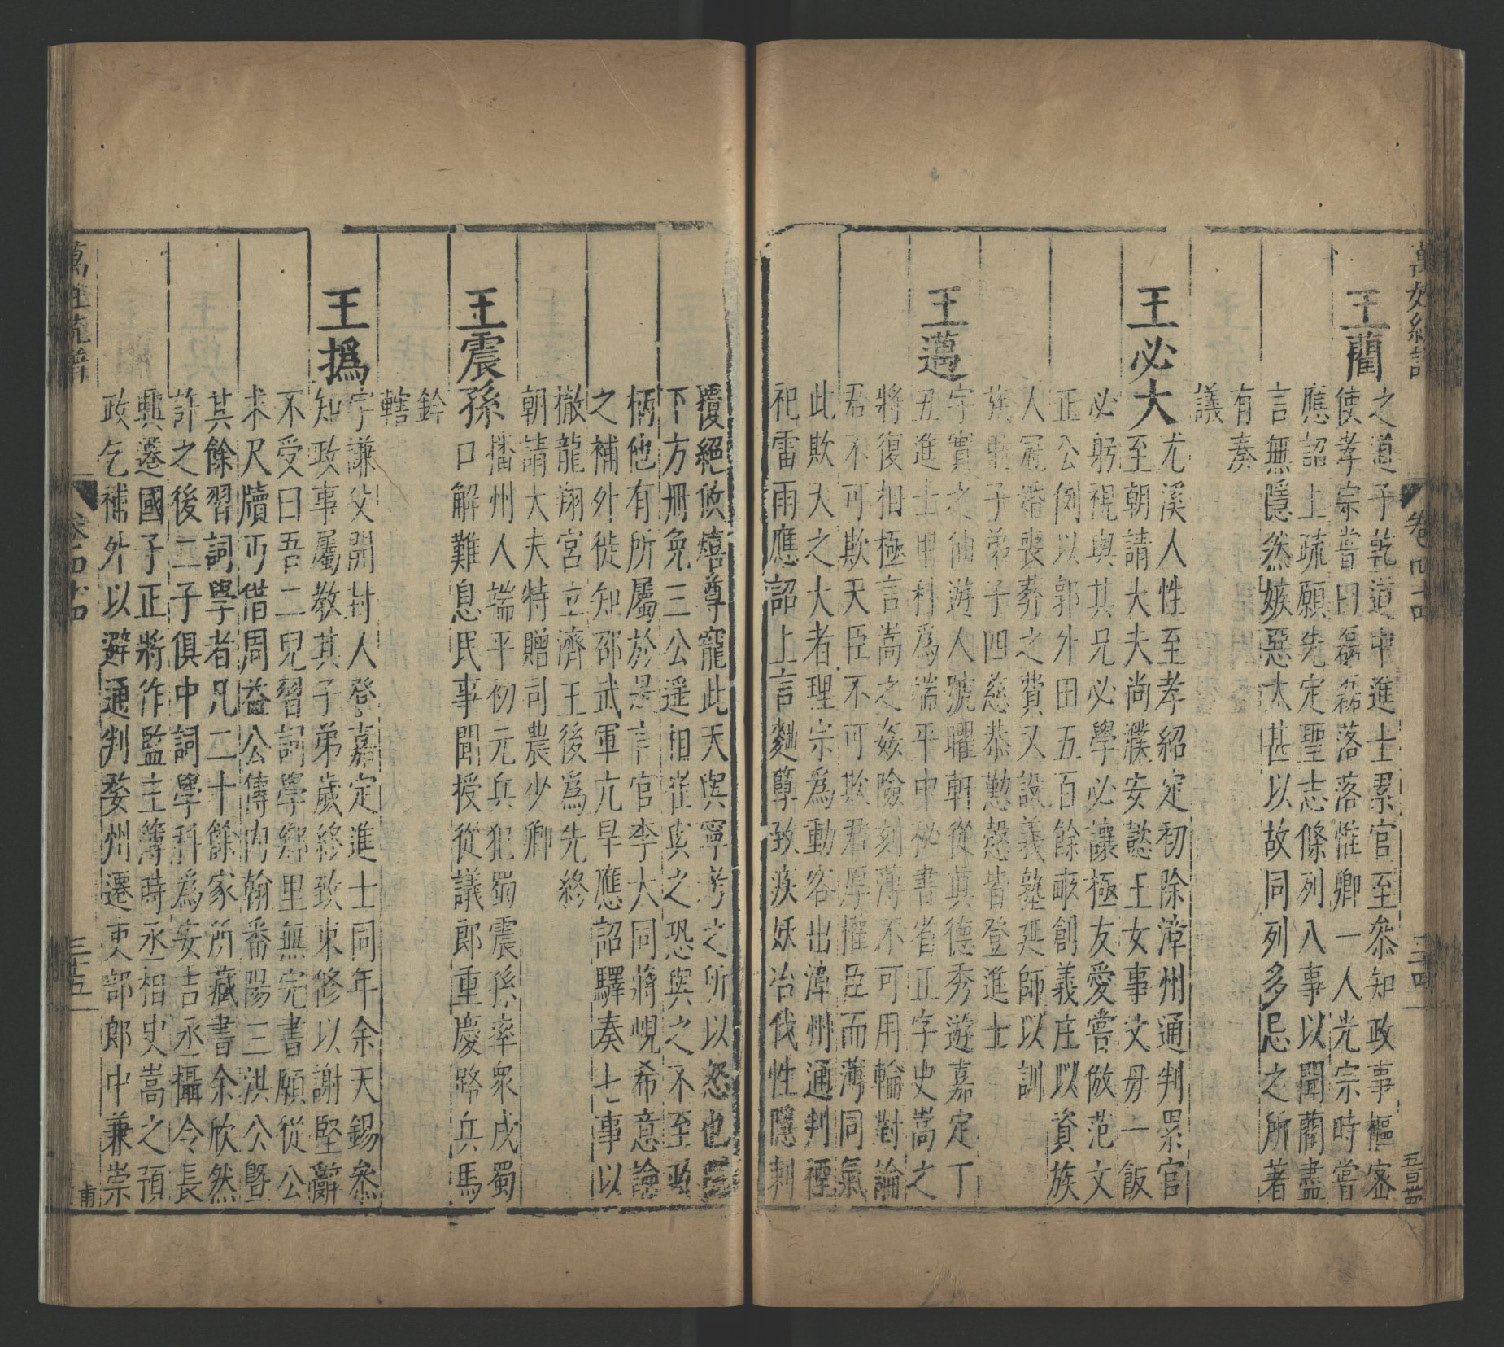 萬姓統譜 卷四十四 三十四
王藺
之道子乾道中進士累官至叅知政事樞密
使孝宗嘗曰磊磊落落惟卿一人光宗時嘗
應詔上疏願先定聖志條列八事以聞藺盡
言無隱然嫉惡太甚以故同列多忌之所著
有奏
議
王必大
尤溪人性至孝紹定初除漳州通判累官
至朝請大夫尚濮安懿王女事父毋一飯
必躬視與其兄必學必讓極友愛嘗倣范文
正公例以郭外田五百餘畝創義庄以資族
人冠帶喪葬之費又設義塾延師以訓
族
子弟子四慈恭懃慤皆登進士
王邁
字實之仙遊人號臞軒從眞德秀遊嘉定丁
丑進士甲科爲端平中祕書省正字史嵩之
將復相極言嵩之姦險刻薄不可用輪對論
君不可欺天臣不可欺君厚權臣而薄同氣
此欺天之大者理宗爲動容出漳州通判禋
祀雷雨應詔上言麴孽致疾妖冶伐性隱刺
覆絕攸熺尊寵此天與寧考之所以怒也
下方册免三公遥相崔與之恐與之不至政
柄他有所屬於是言官李大同蔣峴希意論
之補外徙知邵武軍亢旱應詔驛奏七事以
撤龍翔宮立濟王後爲先終
朝請大夫特贈司農少卿
王震孫
播州人端平初元兵犯蜀震孫率衆戍蜀
口解難息民事聞授從議郎重慶路兵馬
鈐
轄
王撝
字謙父鄞封人登嘉定進士同年余天錫叅
知政事屬教其子弟歲終致束修以謝堅辭
不受曰吾二兒習詞學鄉里無完書願從公
求尺牘丐借周益公傅内翰番陽三洪公曁
其餘習詞學者凡二十餘家所藏書余欣然
許之後二子俱中詞學科爲安吉丞攝令長
興遷國子正將作監主簿時丞相史嵩之預
政乞補外以避通判婺州遷吏部郎中兼崇
萬姓統譜 卷四十四 三十五